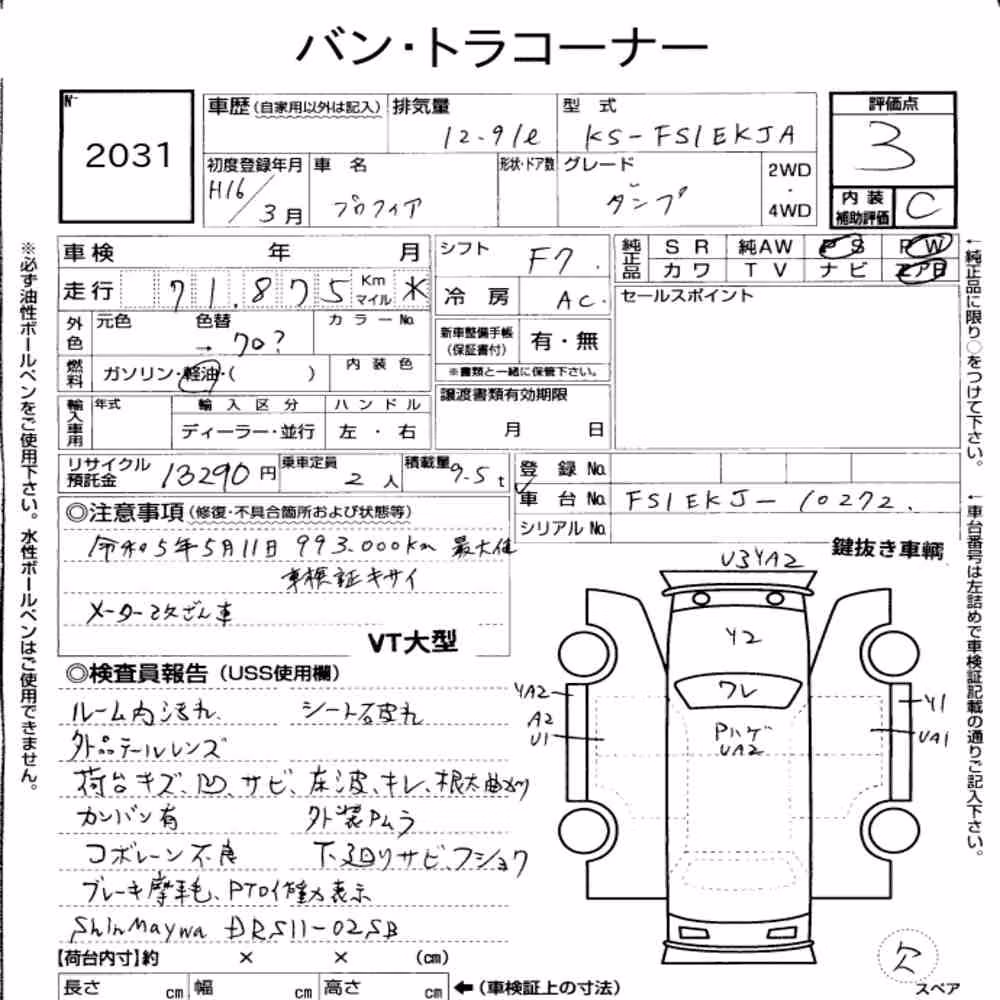 バン・トラコーナー
No
2031
車歴(自家用以外は記入)
排気量 12.91ℓ
型式 KS-FS1EKJA
評価点 3
初度登録年月 H16/3月
車名 プロフィア
形状・ドア数
グレード ダンプ
2WD・4WD
内装補助評価 C
車検 年 月
シフト F7.
純正品 SR 純AW PS PW
カワ TV ナビ エアB
走行 71.875 Km マイル ※
冷房 AC.
セールスポイント
外色 元色 色替 → 70? カラーNo.
新車整備手帳(保証書付) 有・無
※書類と一緒に保管下さい。
燃料 ガソリン・軽油・( ) 内装色
譲渡書類有効期限 月 日
輸入車用 年式 輸入区分 ハンドル
ディーラー・並行 左・右
リサイクル預託金 13290円
乗車定員 2人
積載量 9.5t
登録No.
車台No. FS1EKJ-10272.
シリアルNo.
◎注意事項(修復・不具合箇所および状態等)
令和5年5月11日 993.000km 最大値
車検証キサイ
メーター改ざん車
VT大型
鍵抜き車輌
◎検査員報告(USS使用欄)
ルーム内汚れ、 シート破れ
外品テールレンズ
荷台キズ、凹、サビ、床波、キレ、根太曲り
カンバン有 外装Pムラ
コボレーン不良 下廻りサビ、フショク
ブレーキ摩耗、PTO作動表示
ShinMaywa DRS11-02SB
【荷台内寸】約 × × (cm)
長さ cm 幅 cm 高さ cm ←(車検証上の寸法)
U3YA2
Y2
ワレ
Pハゲ
UA2
YA2
A2
U1
Y1
UA1
欠
スペア
※必ず油性ボールペンをご使用下さい。水性ボールペンはご使用できません。
←純正品に限り○をつけて下さい。
←車台番号は左詰めで車検証記載の通りご記入下さい。